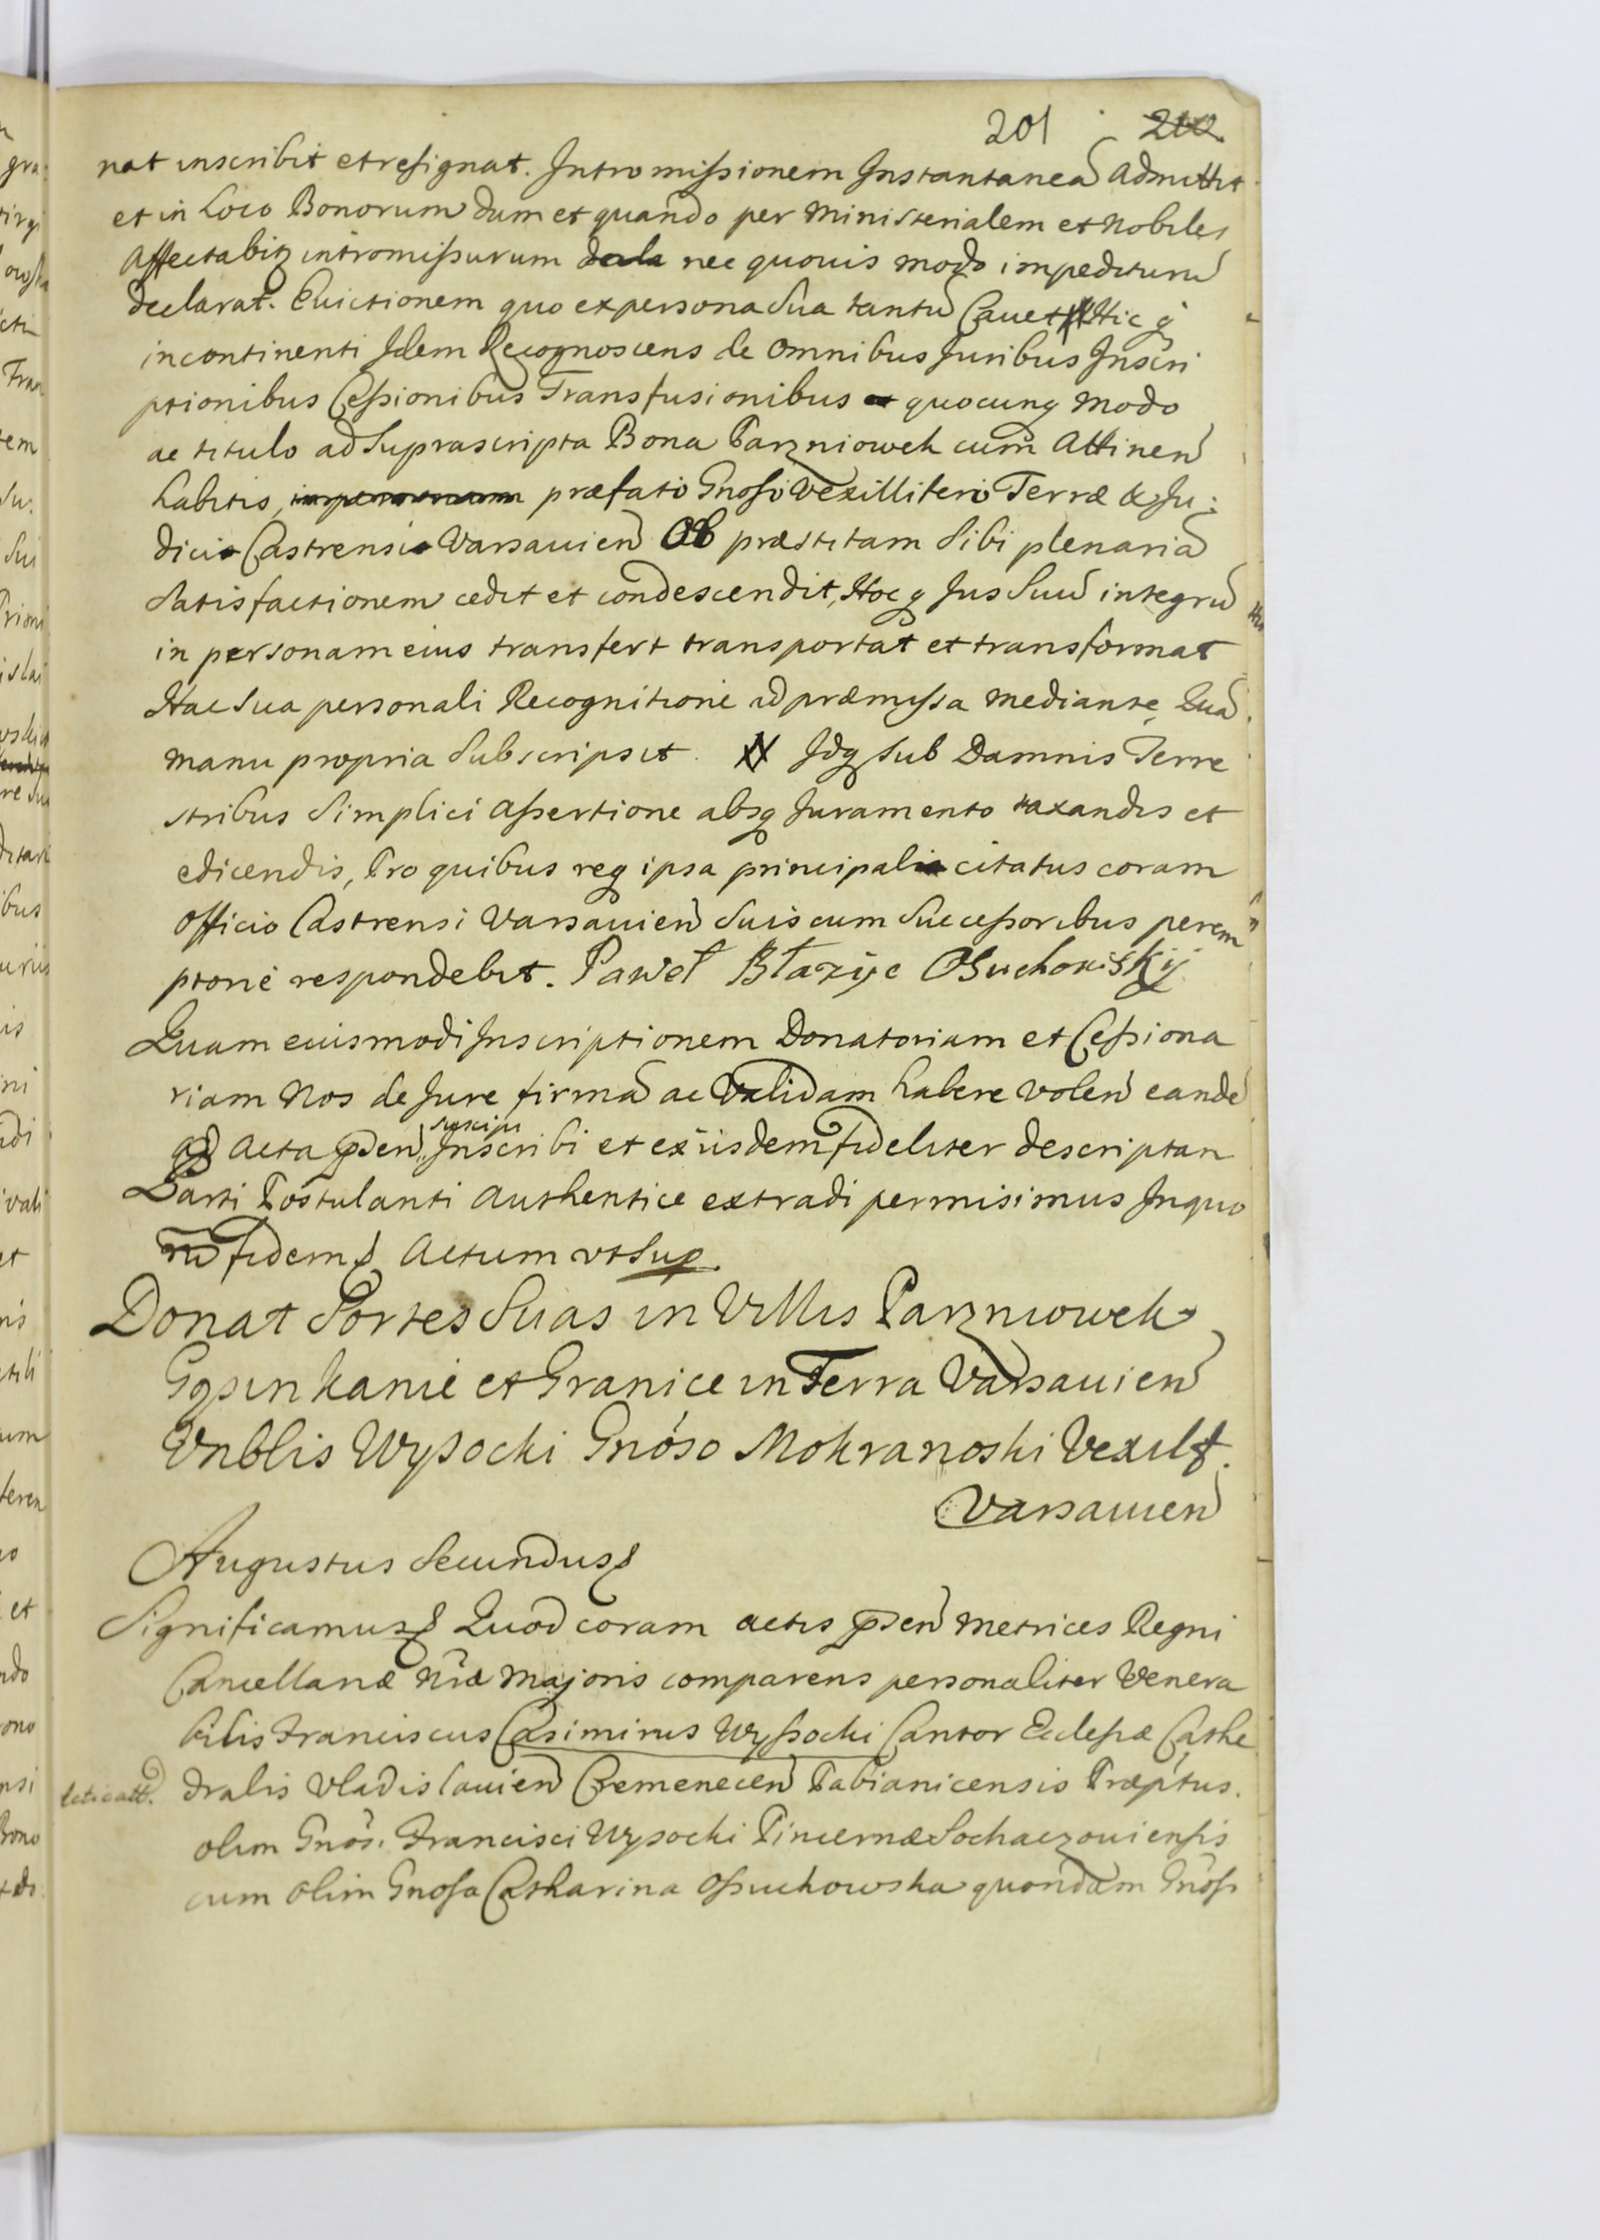 201 200
nat inscribit et resignat. Intromissionem Instantaneã Admittit
et in Loco Bonorum dum et quando per Ministerialem et Nobiles
Affectabitz intromissurum nec quouis modo impediturũ
declarat. Euictionem quo ex persona Sua tantũ Cauet Hic q̃
incontinenti Idem Recognoscens de Omnibus Juribus Inscri
ptionibus Cessionibus Transfusionibus quocunq Modo
ac titulo ad Suprascripta Bona Parzniowek cum Attineñ
habitis, præfato Gnoso Vexillifero Terræ & Ju:
dicio Castrensi Varsauieñ Ob præstitam Sibi plenariã
Satisfactionem cedit et condescendit, Hocq Jus Suũ integrũ
in personam eius transfert transportat et transformat
Hac Sua personali Recognitione ad præmissa mediante, Quã
manu propria Subscripsit. Idq Sub Damnis Terre
stribus Simplici Assertione absq Juramento taxandis et
edicendis, Pro quibus req ipsa principali citatus coram
Officio Castrensi Varsauieñ Suis cum Successoribus perem
ptorie respondebit. Paweł Błazÿc OSuchowskÿ
Quam euismodi Inscriptionem Donatoriam et Cessiona
riam Nos de Jure firmã ac Validam habere voleñ eandẽ
ad Acta pñseñ suscipi Inscribi et ex iisdem fideliter descriptan
Parti Postulanti Authentice extradi permisimus In quo
rũ fidem Actum vt Sup.
Donat Sortes Suas in Villis Parzniowek
Gąsin Kanie et Granice in Terra Varsauieñ
Vnblis Wysocki Gnóso Mokranoski Vexilf.
Varsauieñ
Augustus Secundus
Significamus Quod coram actis pñseñ Metrices Regni
Cancellariæ Nræ Majoris comparens personaliter Venera
bilis Franciscus Casimirus Wyssocki Cantor Ecclesiæ Cathe
dralis Vladislauieñ Pabianicensis Præptus.
olim Gnõs. Francisci Wysocki Pincernæ Sochaczouiensis
cum olim Gnosa Catharina Ossuchowska quondam Gnõss